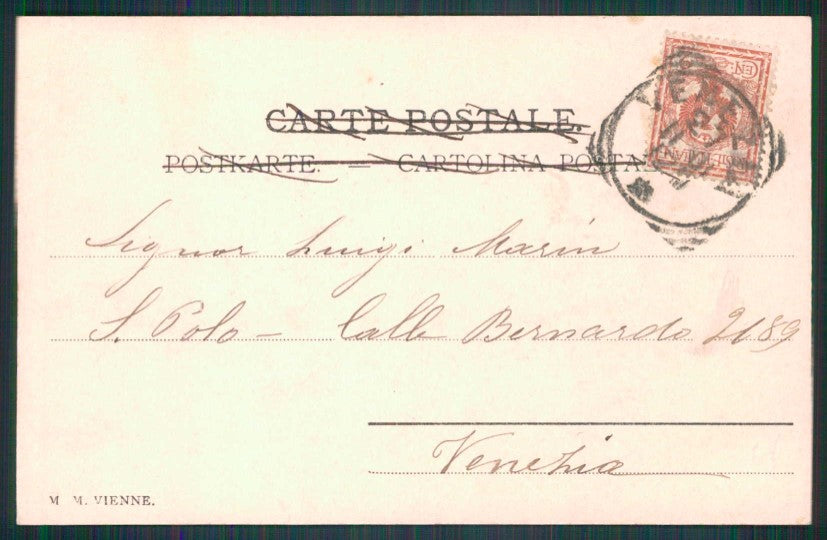 CARTE POSTALE.
POSTKARTE. — CARTOLINA POSTALE
Signor Luigi Marin
S. Polo - Calle Bernardo 2189
Venezia
M. M. VIENNE.